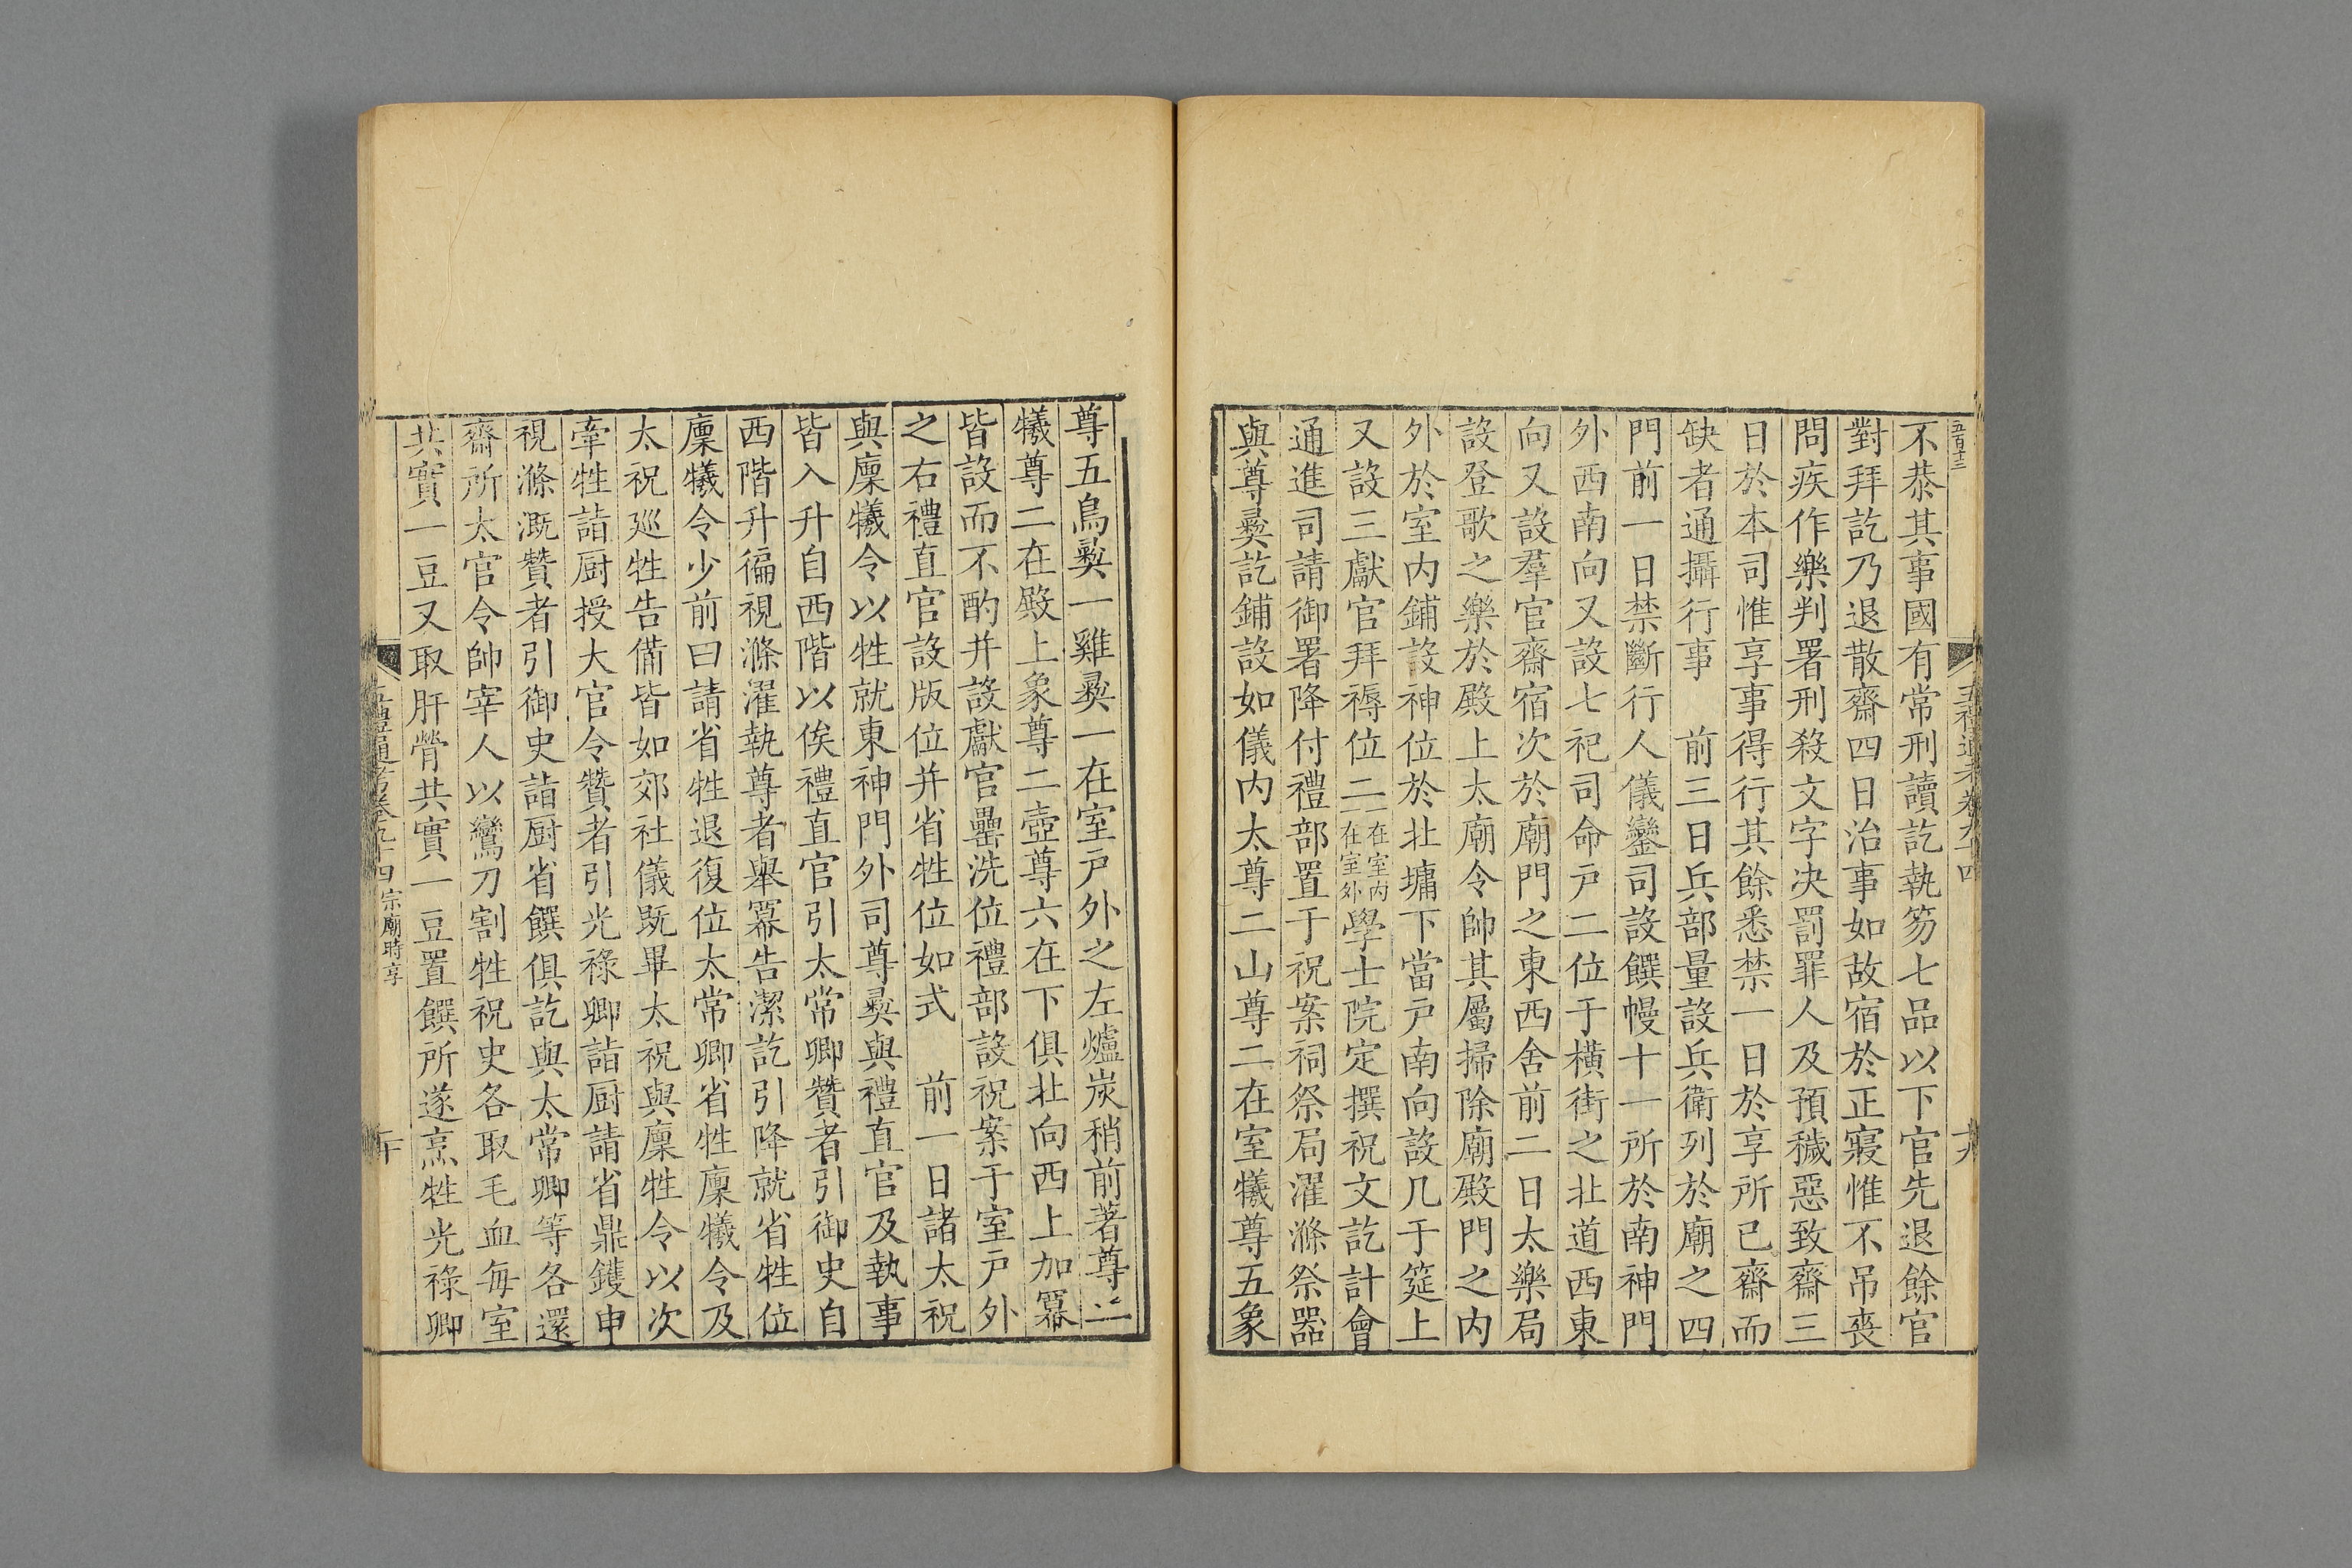 五百十三
五禮通考卷九十四
十九
不恭其事國有常刑讀訖執笏七品以下官先退餘官
對拜訖乃退散齋四日治事如故宿於正寢惟不吊喪
問疾作樂判署刑殺文字决罰罪人及預穢惡致齋三
日於本司惟享事得行其餘悉禁一日於享所已齋而
缺者通攝行事　前三日兵部量設兵衛列於廟之四
門前一日禁斷行人儀鑾司設饌幔十一所於南神門
外西南向又設七祀司命戶二位于橫街之北道西東
向又設羣官齋宿次於廟門之東西舍前二日太樂局
設登歌之樂於殿上太廟令帥其屬掃除廟殿門之内
外於室内鋪設神位於北墉下當戶南向設几于筵上
又設三獻官拜褥位二一在室内一在室外學士院定撰祝文訖計會
通進司請御署降付禮部置于祝案祠祭局濯滌祭器
與尊彛訖鋪設如儀内太尊二山尊二在室犧尊五象
尊五鳥彛一雞彛一在室戶外之左爐炭稍前著尊二
犧尊二在殿上象尊二壺尊六在下俱北向西上加冪
皆設而不酌并設獻官罍洗位禮部設祝案于室戶外
之右禮直官設版位并省牲位如式　前一日諸太祝
與廩犧令以牲就東神門外司尊彛與禮直官及執事
皆入升自西階以俟禮直官引太常卿贊者引御史自
西階升徧視滌濯執尊者舉冪告潔訖引降就省牲位
廩犧令少前曰請省牲退復位太常卿省牲廩犧令及
太祝廵牲告備皆如郊社儀既畢太祝與廩牲令以次
牽牲詣厨授大官令贊者引光祿卿詣厨請省鼎鑊申
視滌溉贊者引御史詣厨省饌俱訖與太常卿等各還
齋所太官令帥宰人以鸞刀割牲祝史各取毛血每室
共實一豆又取肝膋共實一豆置饌所遂烹牲光祿卿
五禮通考卷九十四宗廟時享
二十